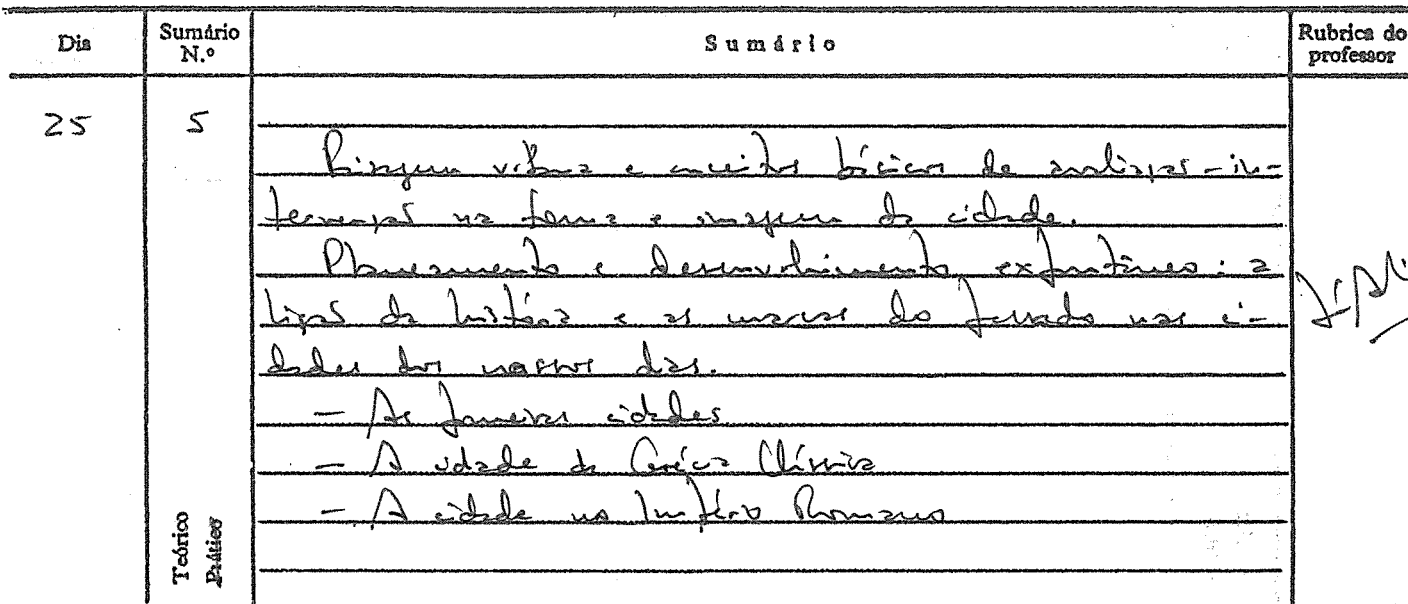 Dia
Sumário N.º
Sumário
Rubrica do professor
25
5
Linguagem urbana e conceitos básicos de análise - in-
tervenção na forma e imagem da cidade.
Planeamento e desenvolvimento espontâneo: a
lição da história e as marcas do passado nas ci-
dades dos nossos dias.
- As primeiras cidades
- A cidade da Grécia Clássica
- A cidade no Império Romano
Teórico
Prático